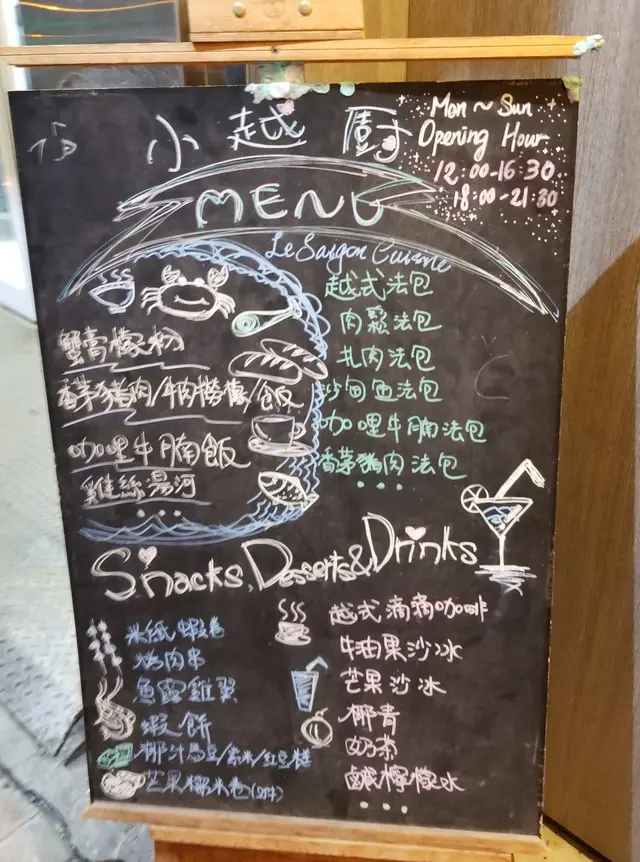 小越廚
Mon ~ Sun
Opening Hour
12:00-16:30
18:00-21:30
MENU
Le Saigon Cuisine
蟹膏檬粉
香茅豬肉/牛肉撈檬/飯
咖哩牛腩飯
雞絲湯河
...
越式法包
肉鬆法包
扎肉法包
沙甸魚法包
咖哩牛腩法包
香茅豬肉法包
...
Snacks, Desserts & Drinks
米紙蝦卷
烤肉串
魚露雞翼
蝦餅
椰汁馬豆/紫米/紅豆糕
芒果糯米卷(2件)
越式滴滴咖啡
牛油果沙冰
芒果沙冰
椰青
奶茶
鹹檸檬水
...